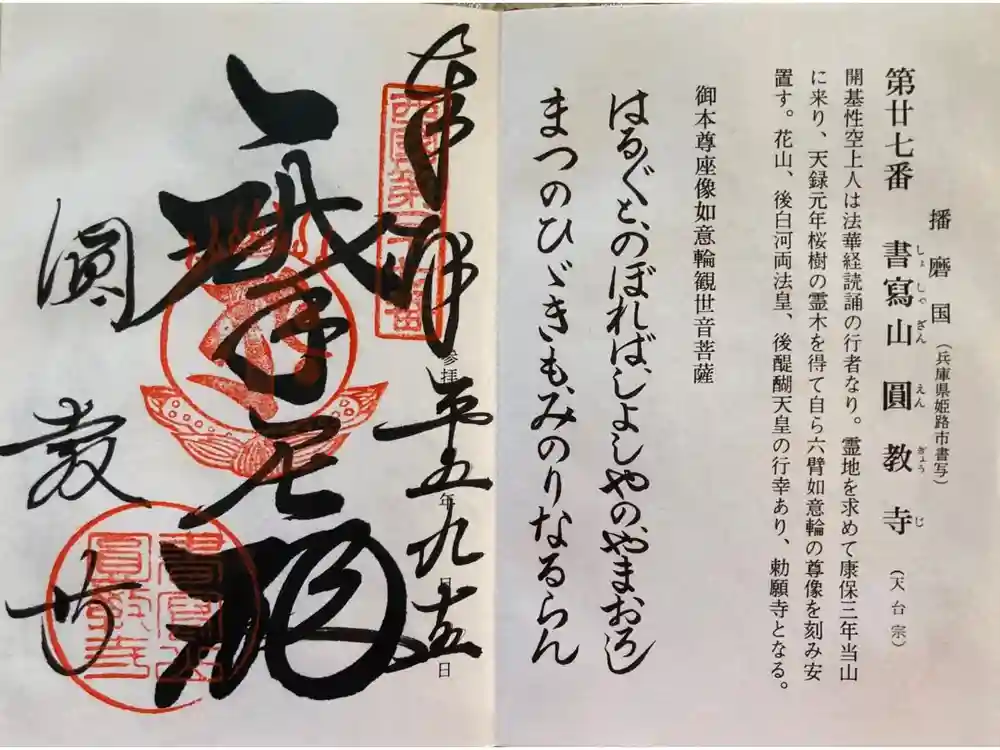 播磨国（兵庫県姫路市書写）
第廿七番 書寫山 圓教寺（天台宗）
しょしゃざん えんぎょうじ
開基性空上人は法華経読誦の行者なり。霊地を求めて康保三年当山
に来り、天録元年桜樹の霊木を得て自ら六臂如意輪の尊像を刻み安
置す。花山、後白河両法皇、後醍醐天皇の行幸あり、勅願寺となる。
御本尊座像如意輪観世音菩薩
はるぐと、のぼれば、しよしやの、やまおろし
まつのひゞきも、みのりなるらん
奉拝
西國第二十七番
参拝 平五年九月十五日
圓教寺
書寫山
圓教寺